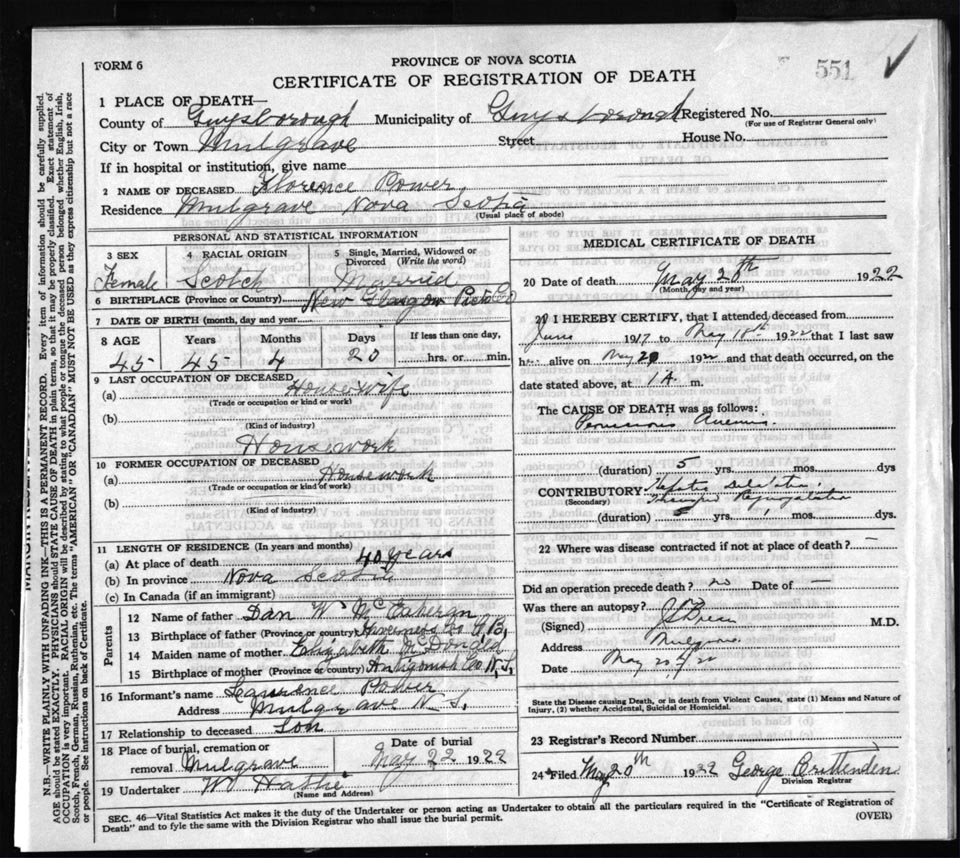 FORM 6
PROVINCE OF NOVA SCOTIA
CERTIFICATE OF REGISTRATION OF DEATH
551
1 PLACE OF DEATH—
County of Guysborough Municipality of Guysborough Registered No.
(For use of Registrar General only)
City or Town Mulgrave Street House No.
If in hospital or institution, give name
2 NAME OF DECEASED Florence Power
Residence Mulgrave Nova Scotia
(Usual place of abode)
PERSONAL AND STATISTICAL INFORMATION
3 SEX Female
4 RACIAL ORIGIN Scotch
5 Single, Married, Widowed or Divorced (Write the word) Married
6 BIRTHPLACE (Province or Country) New Glasgow Pictou Co
7 DATE OF BIRTH (month, day and year)
8 AGE Years Months Days If less than one day,
45 45 4 20 hrs. or min.
9 LAST OCCUPATION OF DECEASED
(a) Housewife
(Trade or occupation or kind of work)
(b)
(Kind of industry)
Housework
10 FORMER OCCUPATION OF DECEASED
(a) Housework
(Trade or occupation or kind of work)
(b)
(Kind of industry)
11 LENGTH OF RESIDENCE (In years and months)
(a) At place of death 40 years
(b) In province Nova Scotia
(c) In Canada (if an immigrant)
Parents
12 Name of father Dan W McEachern
13 Birthplace of father (Province or country) Inverness Co C.B.
14 Maiden name of mother Elizabeth McDonald
15 Birthplace of mother (Province or country) Antigonish Co N.S.
16 Informant's name Laurence Power
Address Mulgrave N.S.
17 Relationship to deceased Son
18 Place of burial, cremation or removal Mulgrave
Date of burial May 22 1922
19 Undertaker
(Name and Address)
MEDICAL CERTIFICATE OF DEATH
20 Date of death May 20th 1922
(Month, day and year)
21 I HEREBY CERTIFY, that I attended deceased from
June 1917 to May 1922 that I last saw
h alive on May 20 1922 and that death occurred, on the
date stated above, at 1 A. m.
The CAUSE OF DEATH was as follows:
Pernicious Anemia.
(duration) 5 yrs. mos. dys
CONTRIBUTORY
(Secondary)
(duration) yrs. mos. dys.
22 Where was disease contracted if not at place of death? —
Did an operation precede death? no Date of —
Was there an autopsy?
(Signed) M.D.
Address Mulgrave
Date May 20/22
State the Disease causing Death, or in death from Violent Causes, state (1) Means and Nature of
Injury, (2) whether Accidental, Suicidal or Homicidal.
23 Registrar's Record Number
24 Filed May 20th 1922 George Brittenden
Division Registrar
SEC. 46—Vital Statistics Act makes it the duty of the Undertaker or person acting as Undertaker to obtain all the particulars required in the "Certificate of Registration of
Death" and to fyle the same with the Division Registrar who shall issue the burial permit. (OVER)
N.B.—WRITE PLAINLY WITH UNFADING INK—THIS IS A PERMANENT RECORD. Every item of information should be carefully supplied.
AGE should be stated EXACTLY. PHYSICIANS should STATE CAUSE OF DEATH in plain terms, so that it may be properly classified. Exact statement of
OCCUPATION is very important. RACIAL ORIGIN will be described by stating to what people or tongue the deceased person belonged whether English, Irish,
Scotch, French, German, Russian, Ruthenian, etc. The terms "AMERICAN" or "CANADIAN" MUST NOT BE USED as they express citizenship but not a race
or people. See instructions on back of Certificate.